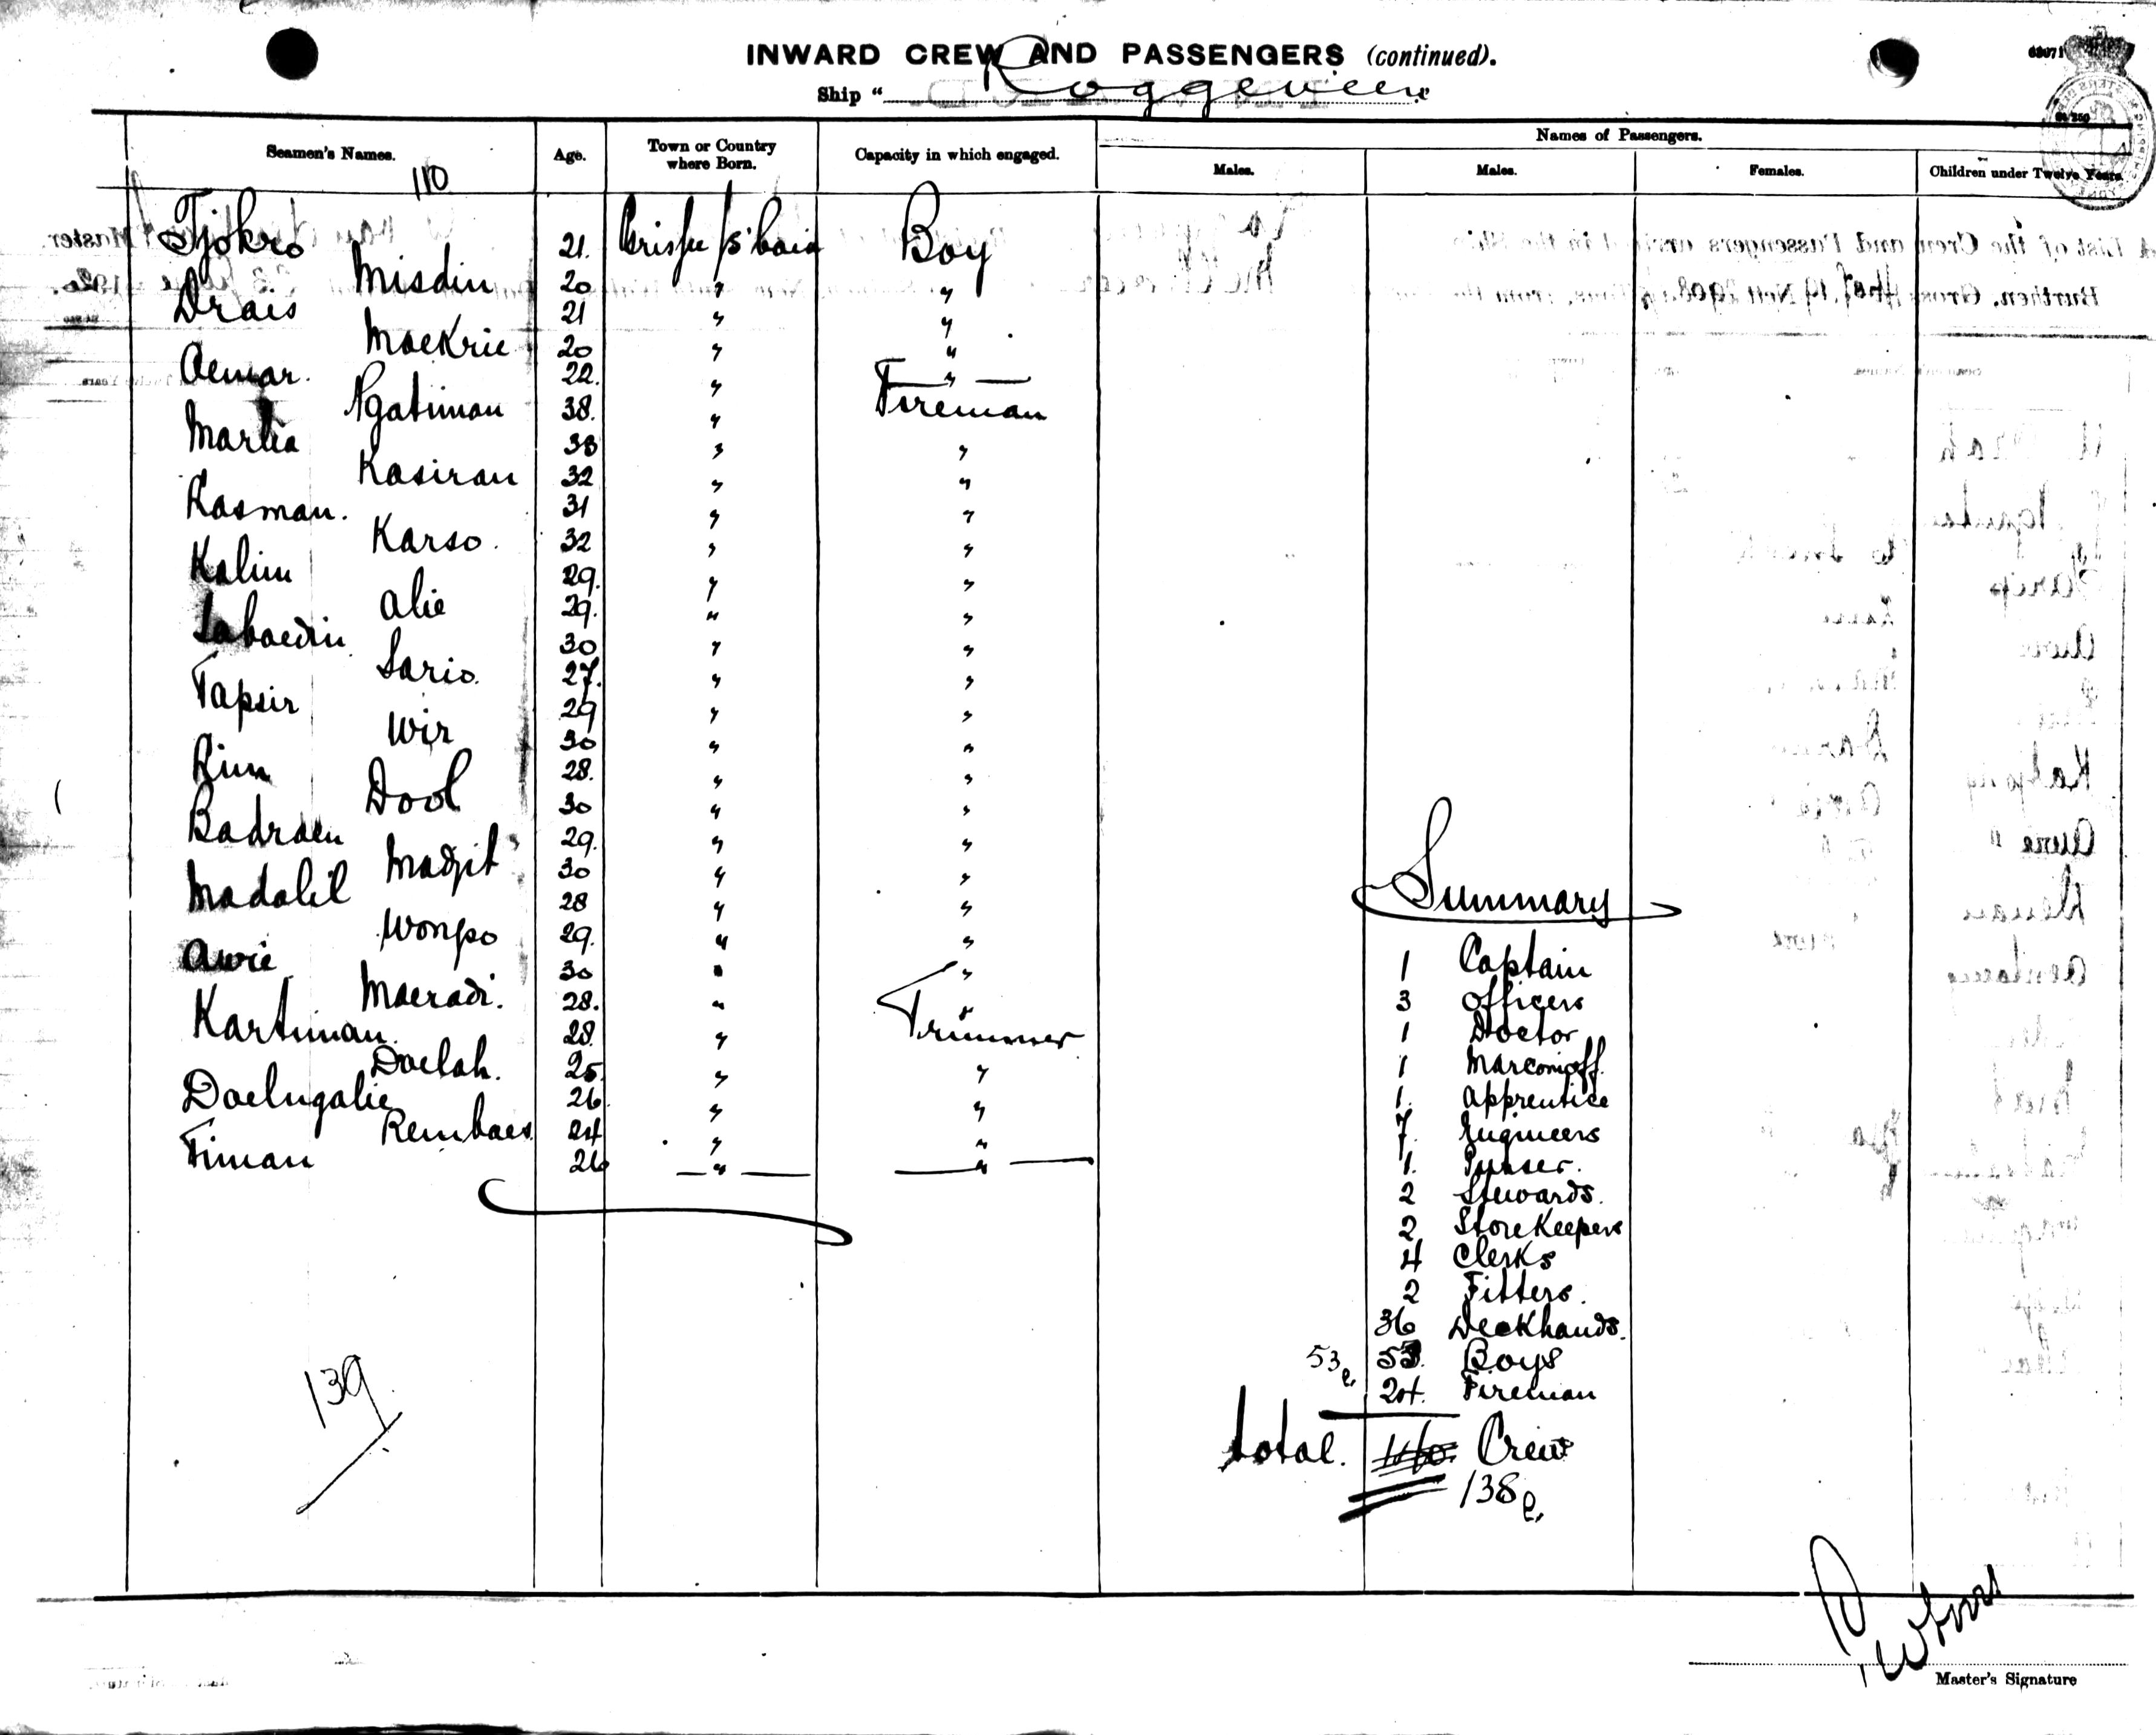 INWARD CREW AND PASSENGERS (continued).
Ship "Roggeveen"
Seamen's Names. Age. Town or Country where Born. Capacity in which engaged. Names of Passengers.
Males. Males. Females. Children under Twelve Years.
110
Tjokro 21. Boy
Misdin 20 " "
Drais 21 " "
Moekrie 20 " "
Oemar. 22. " "
Ngatiman 38. " Fireman
Marlia 33 " "
Kasiran 32 " "
Kasman. 31 " "
Karso. 32 " "
Kalim 29. " "
Alie 29. " "
Saboedin 30 " "
Sario. 27. " "
Tapsir 29 " "
Wir 30 " "
Rim 28. " "
Dool 30 " "
Badroen 29. " "
Madjit 30 " "
Madalil 28 " "
Wongso 29. " "
Awie 30 " "
Moeradi. 28. " "
Kartiman. 28. " Trimmer
Doelah. 25. " "
Doelngalie 26. " "
Remboes 24 " "
Timan 26 " "
139
Summary
1 Captain
3 Officers
1 Doctor
1 Marconioff.
1. Apprentice
7. Engineers
1. Purser.
2 Stewards.
2 Storekeepers
4 Clerks
2 Fitters.
36 Deckhands.
53 53. Boys
24. Fireman
total. Crew
138
Master's Signature